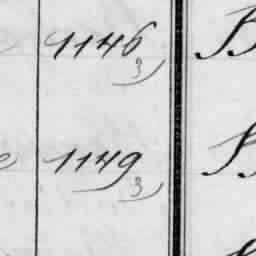 1146
3)
1149
3)